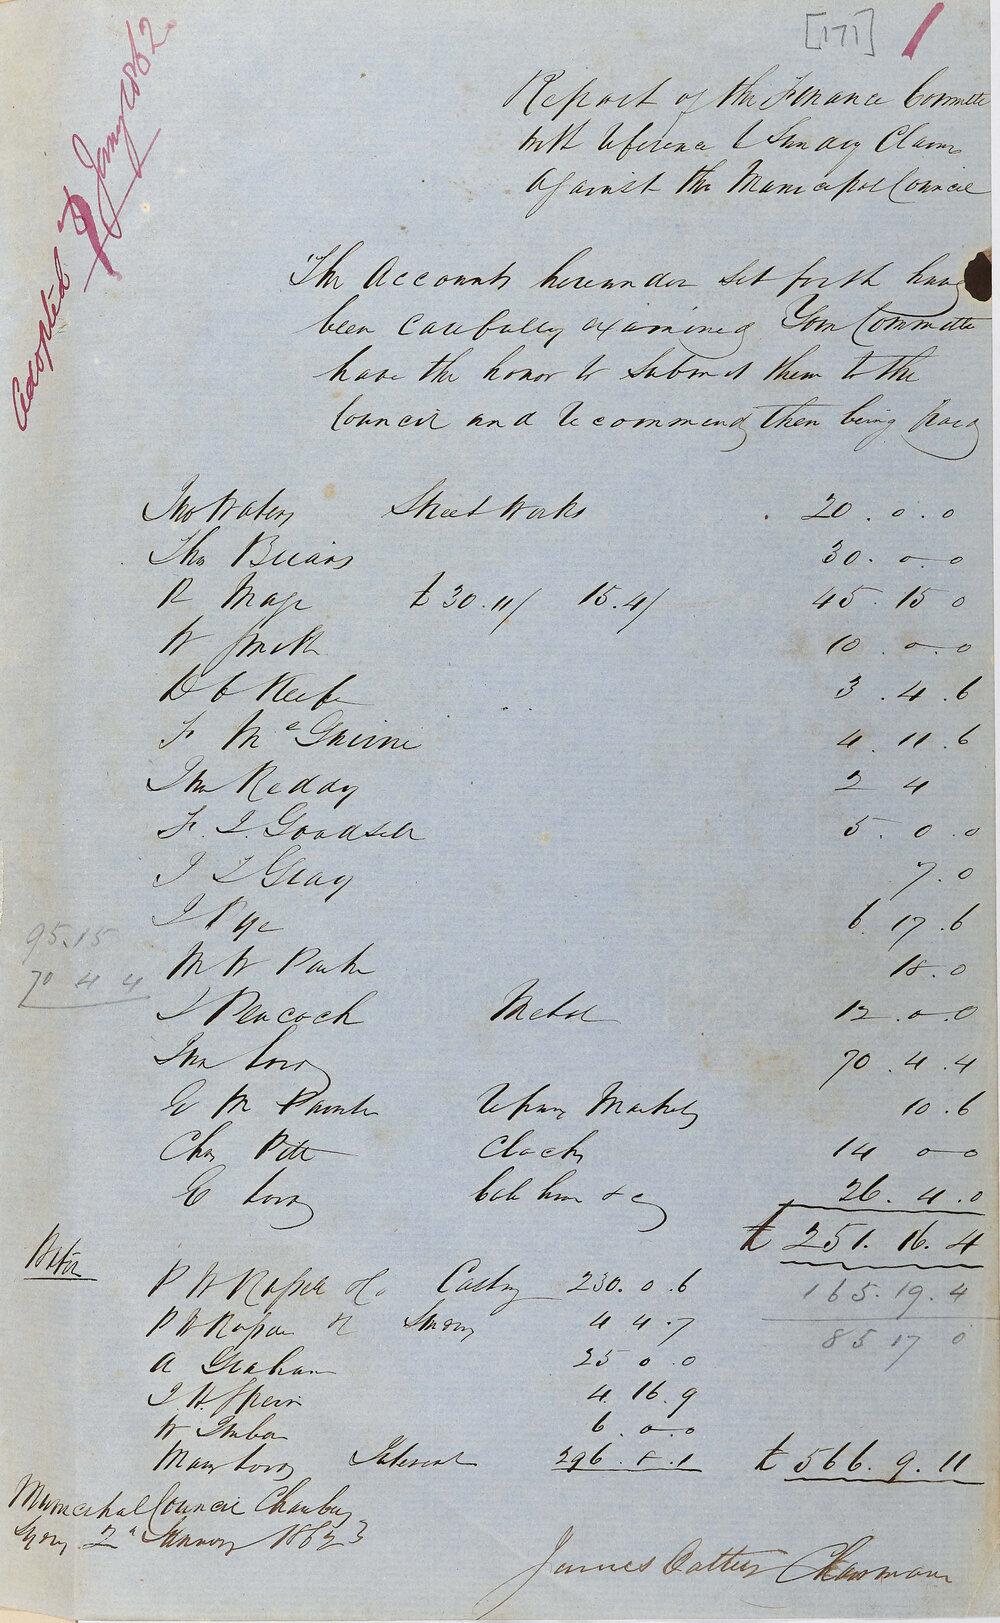 [171]
Adopted 7 Jany 1862
Report of the Finance Committe
with reference to Sundry Claims
against the Municipal Council
The Accounts hereunder set forth having
been carefully examined Your Committe
have the honor to submit them to the
Council and recommend their being paid
Jno Waters Street Works 20.0.0
Thos 30.0.0
R Mage £30.11/ 15.4/ 45.15 0
W Smith 10.0.0
D O Keefe 3.4.6
F McGuirne 4.11.6
Jno Reddy 2 4
F. J Goodsell 5.0.0
J T Gray 7.0
J Pye 6.17.6
95.15
M W Parker 18.0
70 4 4
J Peacock Metal 12.0.0
Jno 70.4.4
E M Paynter Markets 10.6
Chas Pitt Clocks 14 0 0
E Cab hire &c 26.4.0
£251.16.4
Water
P N Russell & Co Casting 230.0.6
165.19.4
P N Russell & Co Sundry 4 4.7
85 17 0
A Graham 25 0.0
J H Speer 4.16.9
W 6.0.0
Interest 296.8.1 £566.9.11
Municipal Council Chambers
Sydney 2d January 1863
James Oatley Chairman